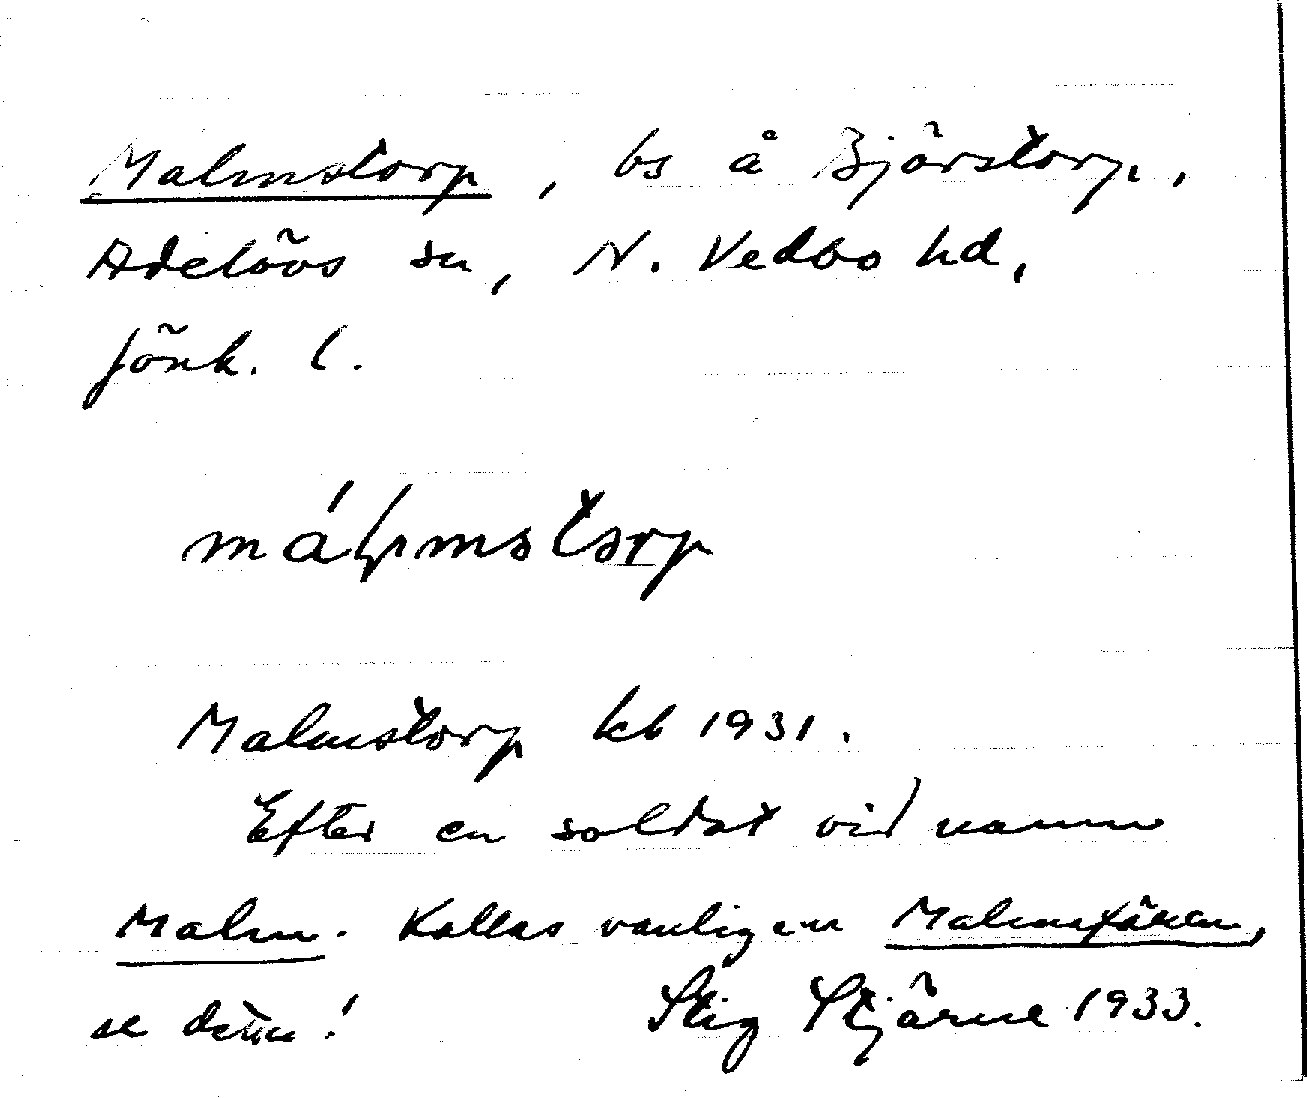 Malmstorp, bs å Björstorp,
Adelövs sn, N. Vedbo hd,
Jönk. l.
Malmstorp kb 1931.
Efter en soldat vid namn
Malm. Kallas vanligen
se d:o! Stig Stjärne 1933.